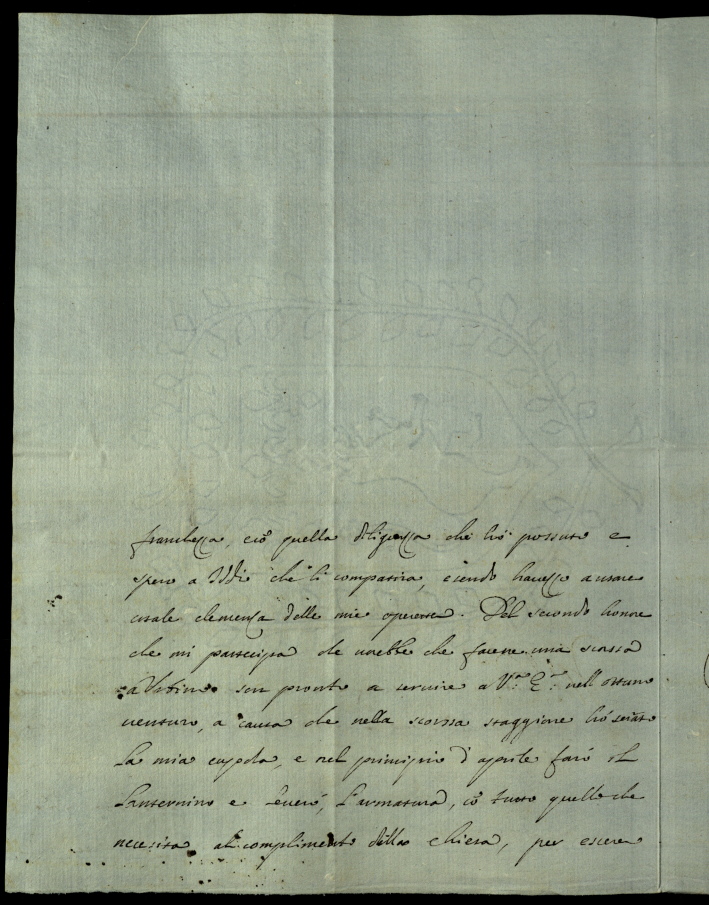 franchezza, e cō quella diligenza che hò possuto e
spero a Iddio che li compatira, esendo havezzo a usare
cotale clemenza delle mie operette. Del secondo honore
che mi partecipa che vorebbe che facese una scorsa
a Urbino son pronto a servire a V.ª E.ª nell ottune
venturo, a causa che nella scorsa staggione hó serato
La mia cupola, e nel principio d'aprile faró il
Lanternino e Leveró, L'armatura, cō tutto quello che
necesita al complimento della chiesa, per essere